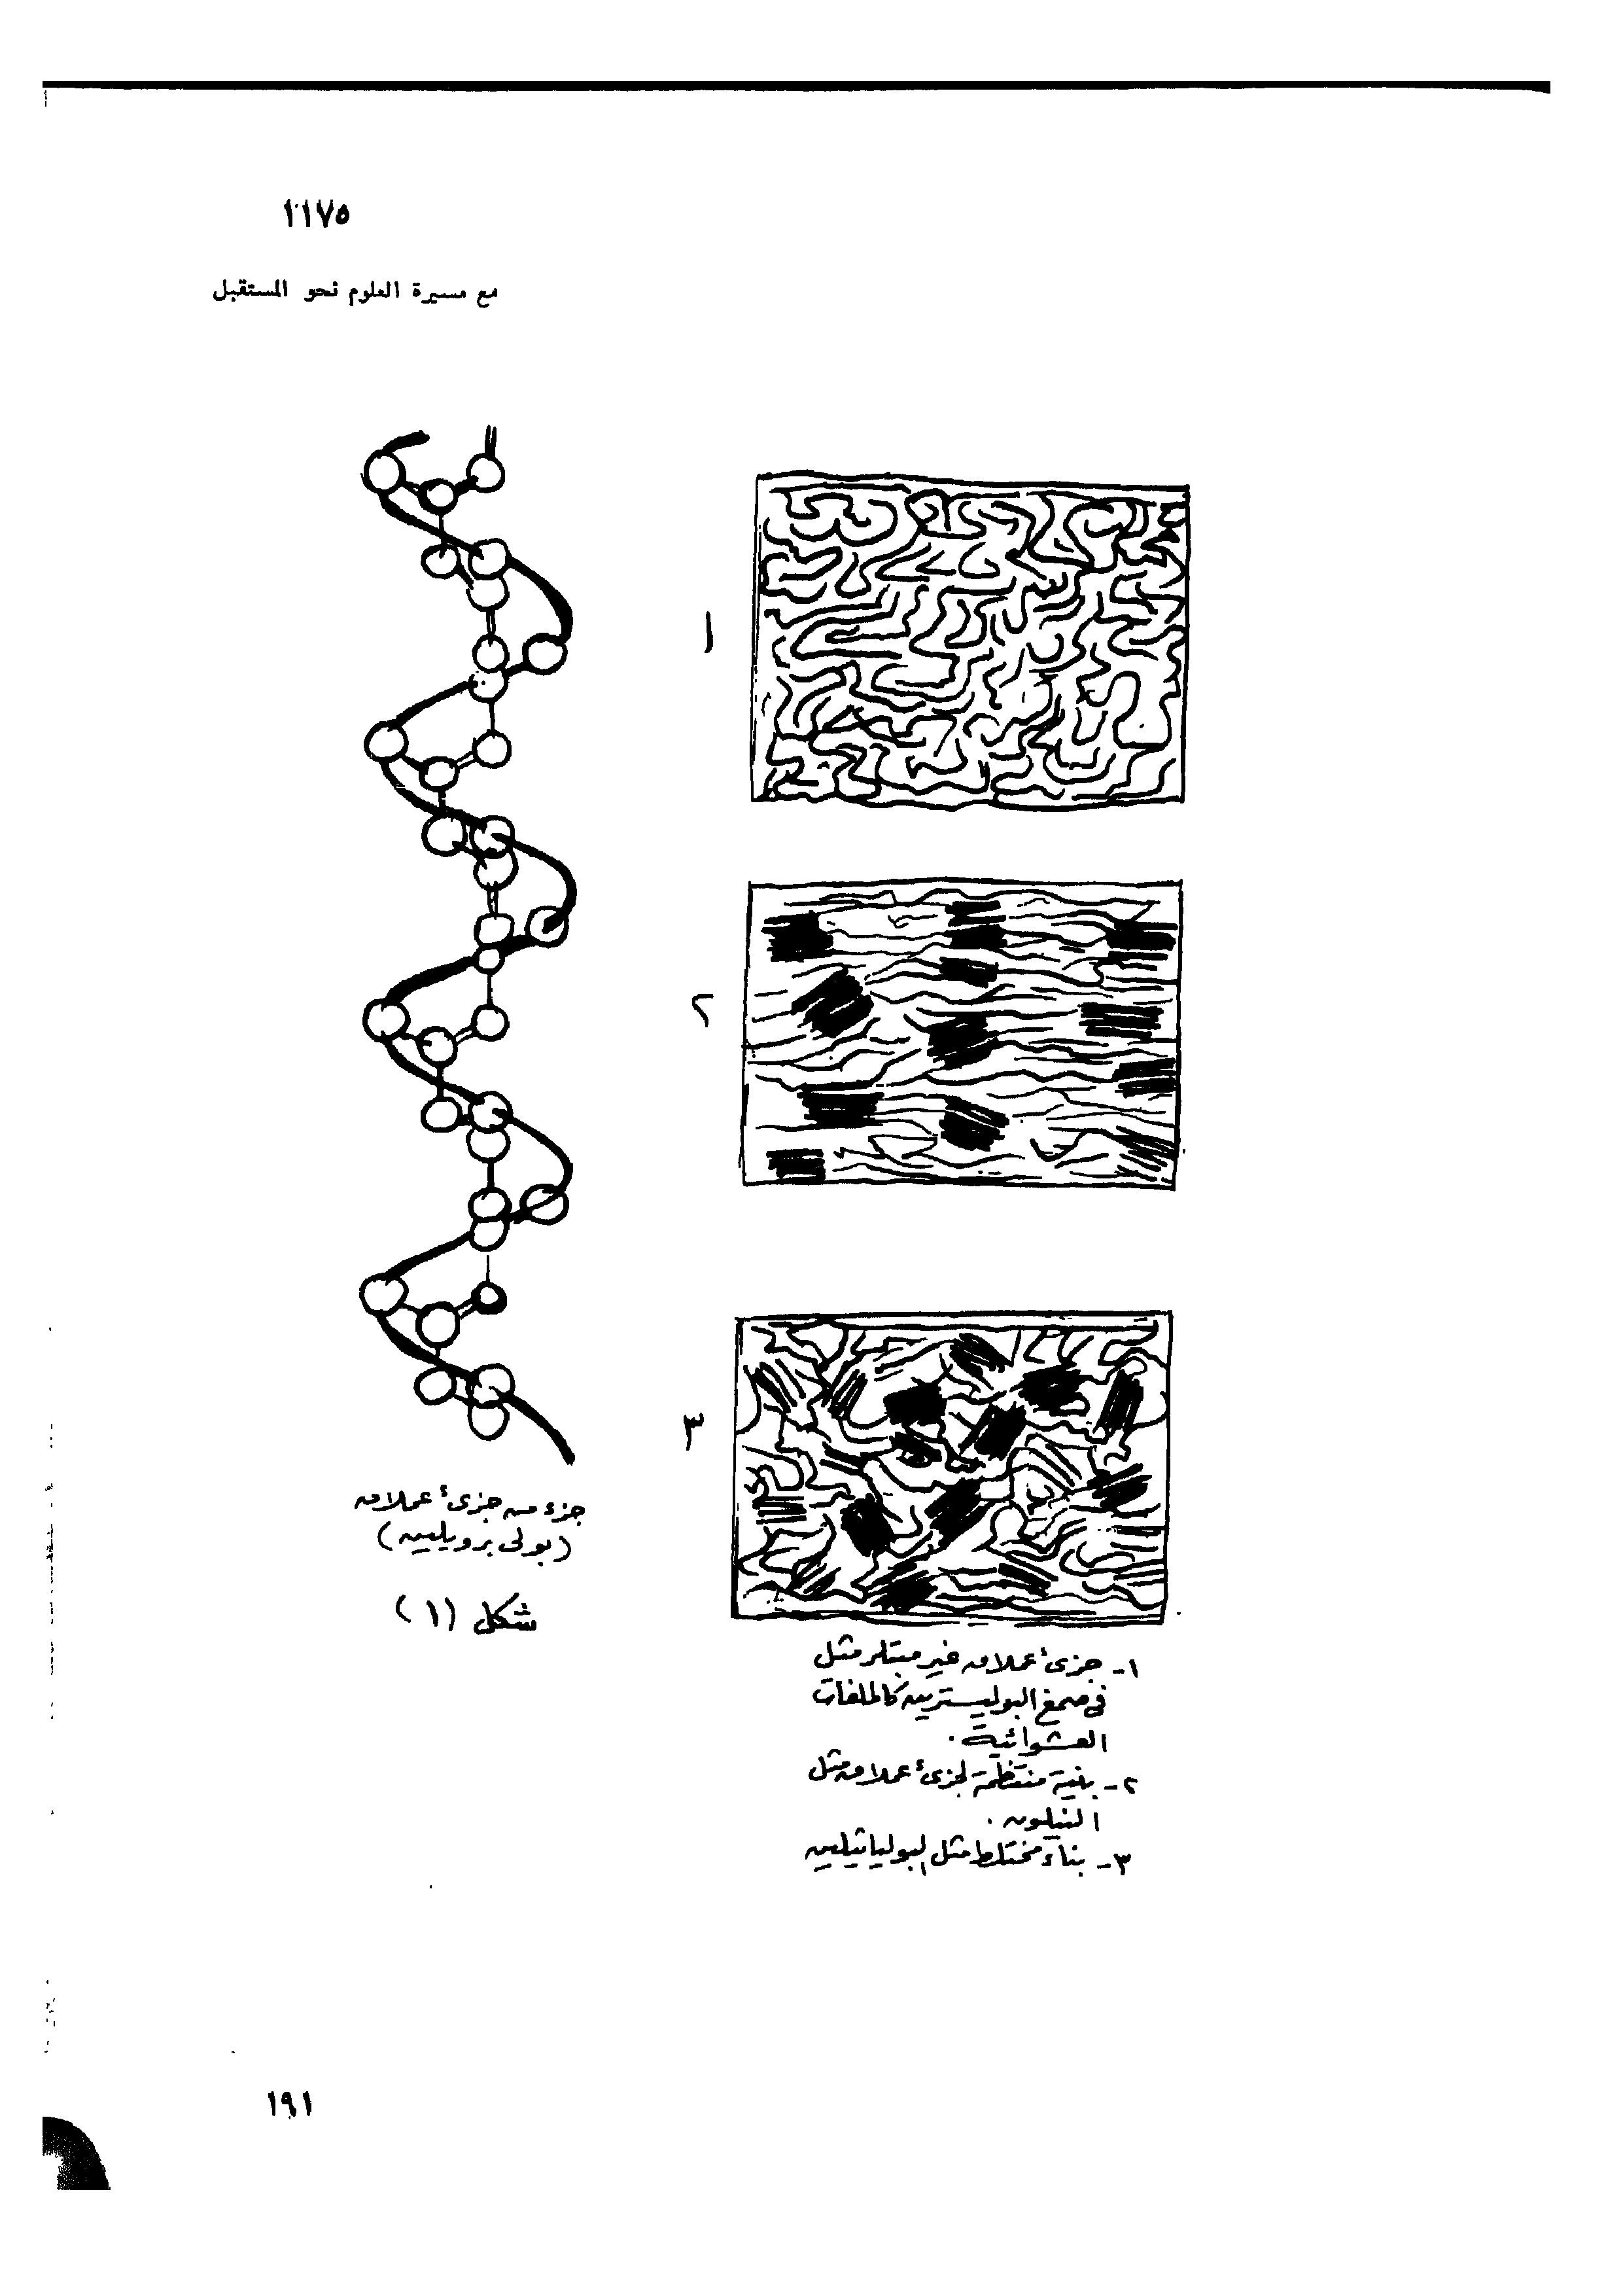 ١١٧٥
مع مسيرة العلوم نحو المستقبل
١
٢
٣
جزء من جزئ عملاق
(بولى بروبلين)
شكل (١)
١- جزئ عملاق غير مبتلر مثل
فى صمغ البوليسترين كالملفات
العشوائية.
٢- بنية منتظمة لجزئ عملاق مثل
النيلون.
٣- بناء مختلط مثل البوليايثلين
١٩١